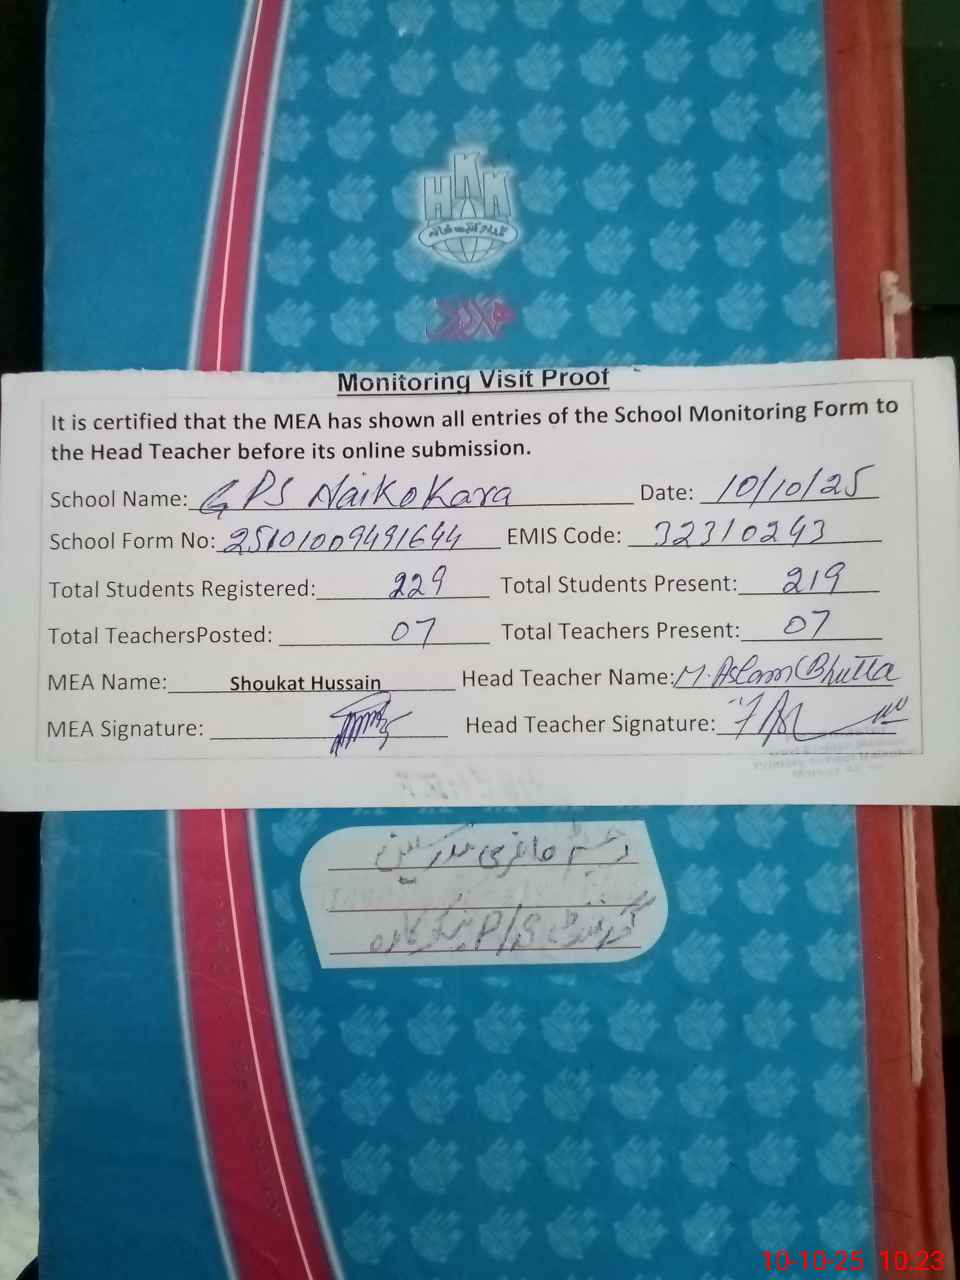 HKK
Monitoring Visit Proof
It is certified that the MEA has shown all entries of the School Monitoring Form to
the Head Teacher before its online submission.
School Name: GPS Naikokara Date: 10/10/25
School Form No: 25101009491644 EMIS Code: 32310243
Total Students Registered: 229 Total Students Present: 219
Total TeachersPosted: 07 Total Teachers Present: 07
MEA Name: Shoukat Hussain Head Teacher Name: M. Aslam Bhutta
MEA Signature: Head Teacher Signature:
رجسٹر حاضری مدرسین
گورنمنٹ P/S
10-10-25 10:23